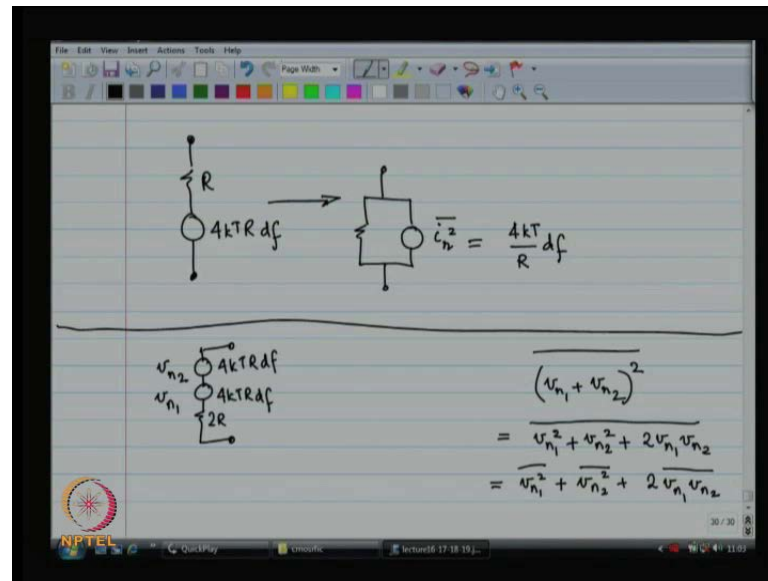 File Edit View Insert Actions Tools Help
Page Width
R
4kTR df
i_n^2 = 4kT/R df
v_n2 4kTR df
v_n1 4kTR df
2R
(v_n1 + v_n2)^2
= v_n1^2 + v_n2^2 + 2 v_n1 v_n2
= v_n1^2 + v_n2^2 + 2 v_n1 v_n2
30 / 30
NPTEL
QuickPlay
cmosrfic
lecture16-17-18 19.j...
11:03